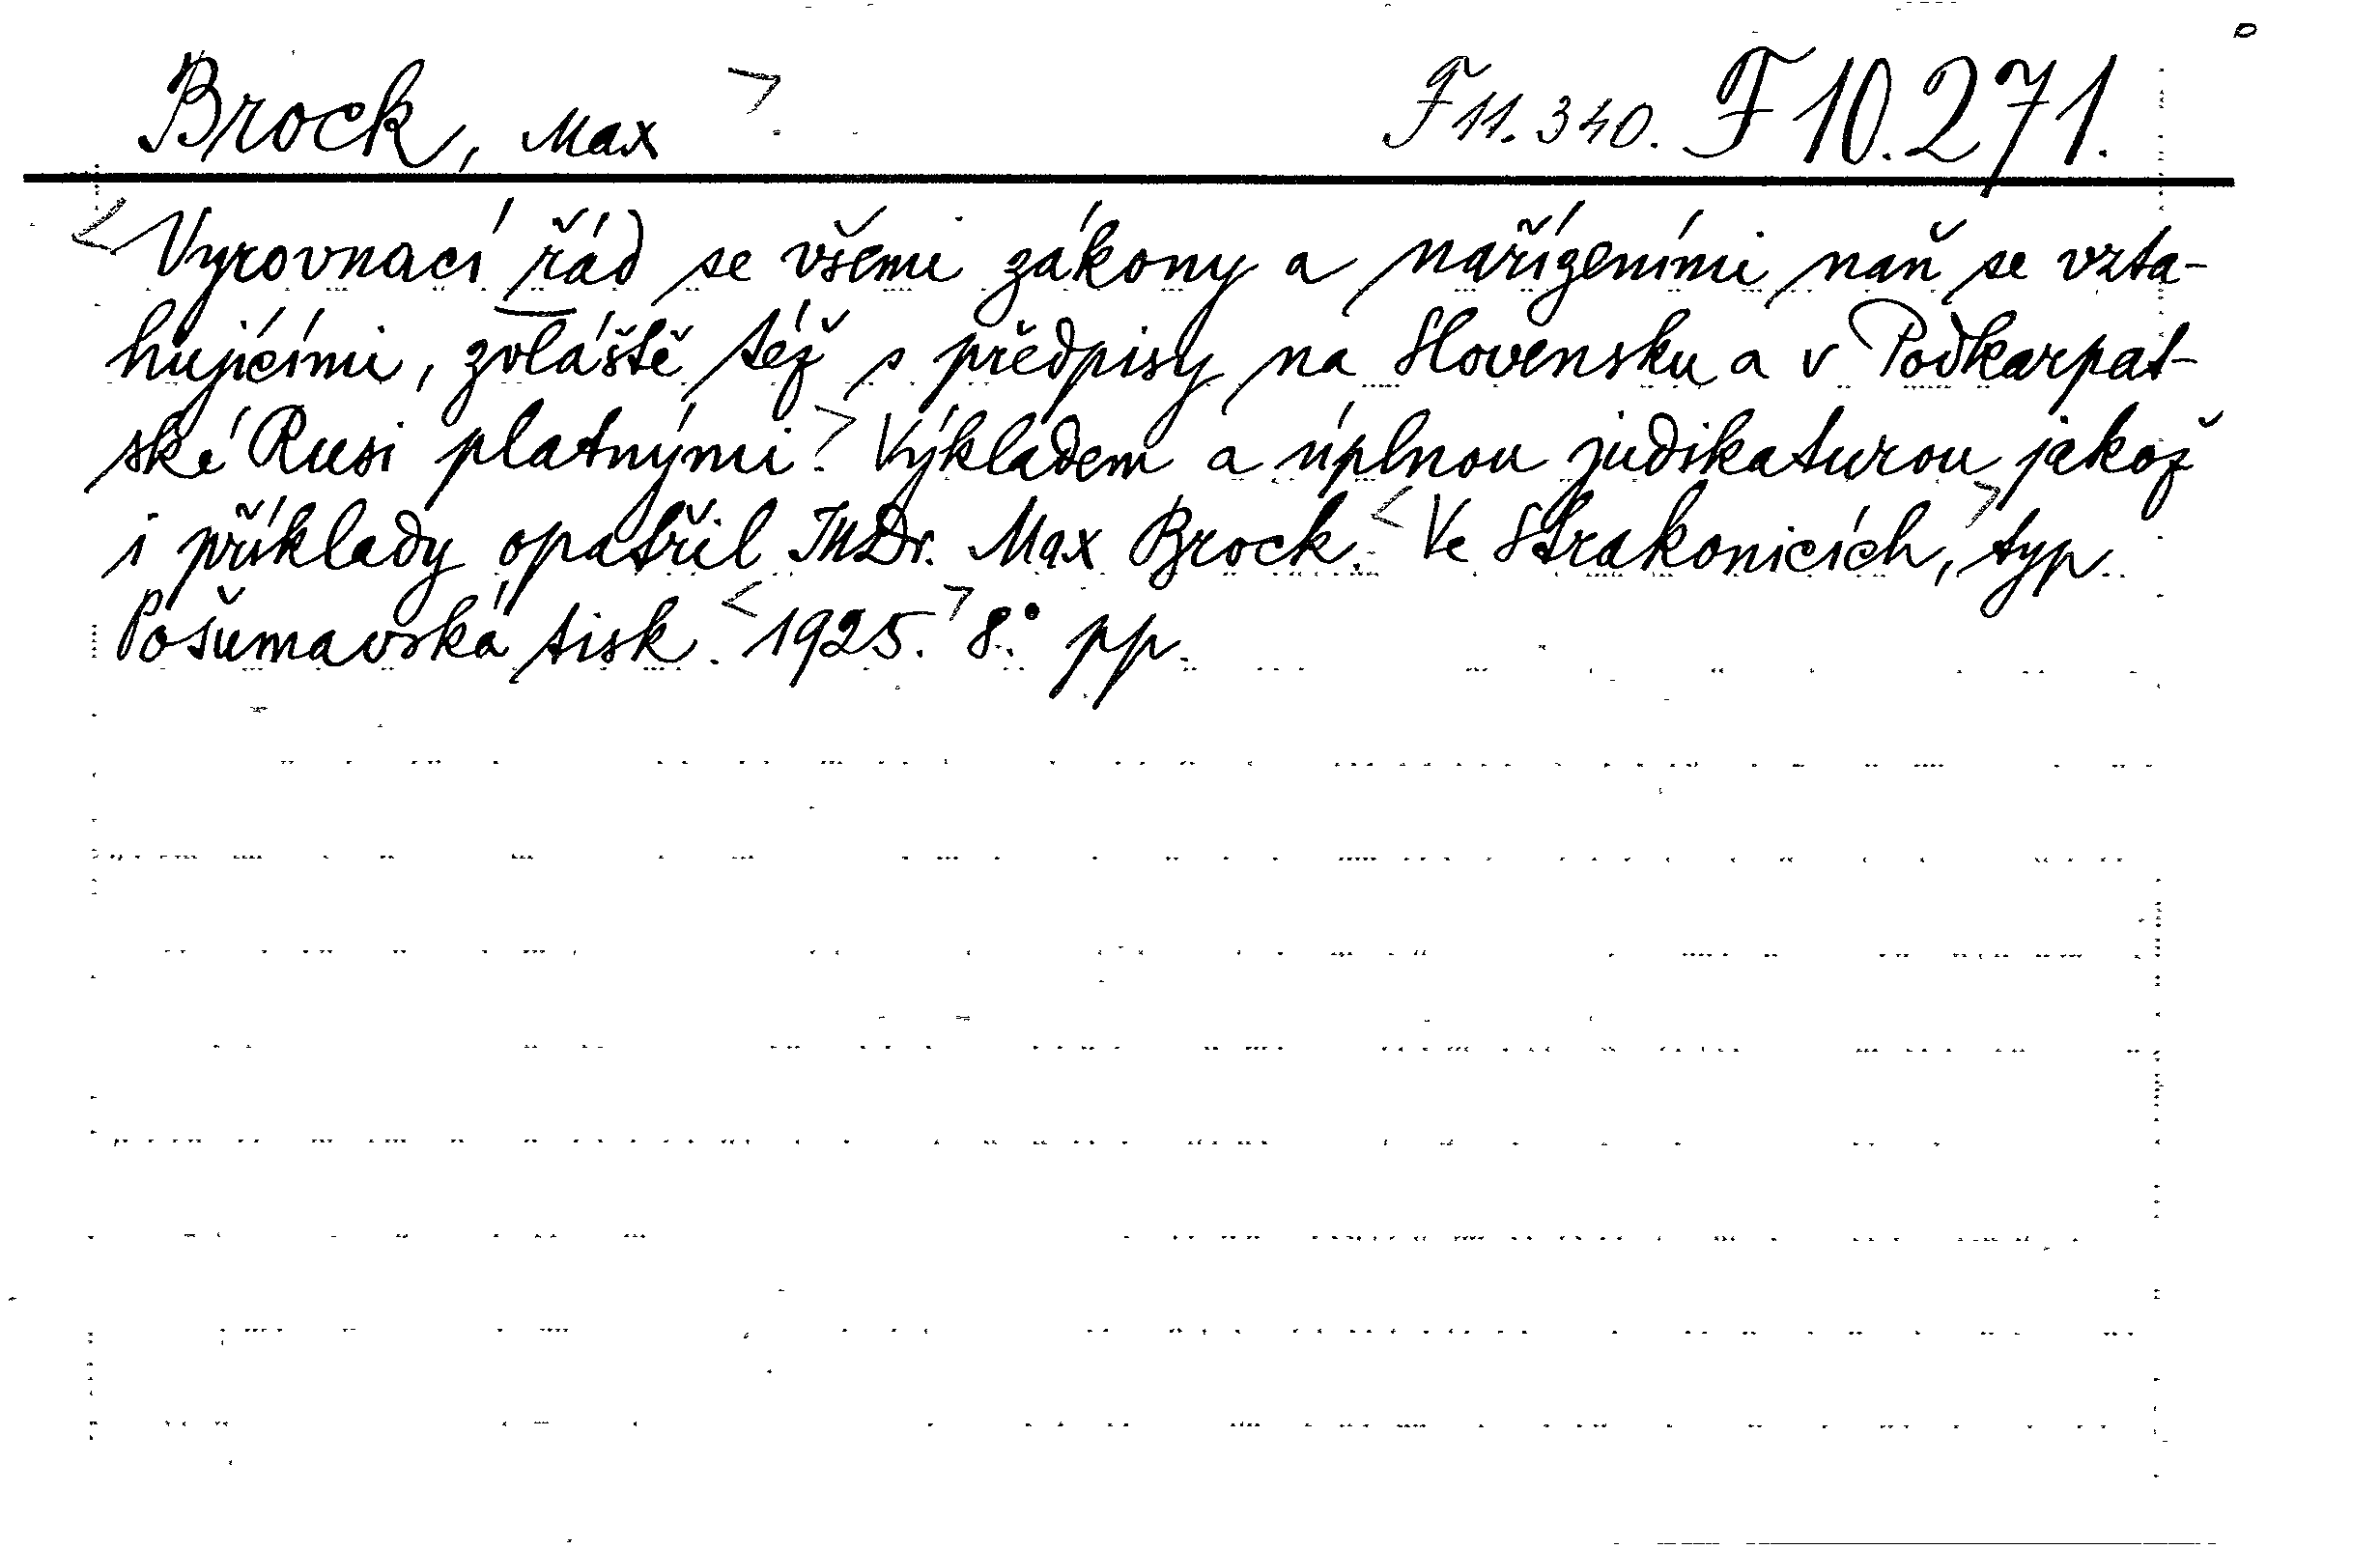 Brock, Max >. F 11.340. F 10.271.
< Vyrovnací řád se všemi zákony a nařízeními naň se vzta-
hujícími, zvláště též s předpisy na Slovensku a v Podkarpat-
ské Rusi platnými.> Výkladem a úplnou judikaturou jakož
i příklady opatřil JUDr. Max Brock. < Ve Strakonicích, > typ.
Pošumavská tisk. < 1925. > 8.° pp.